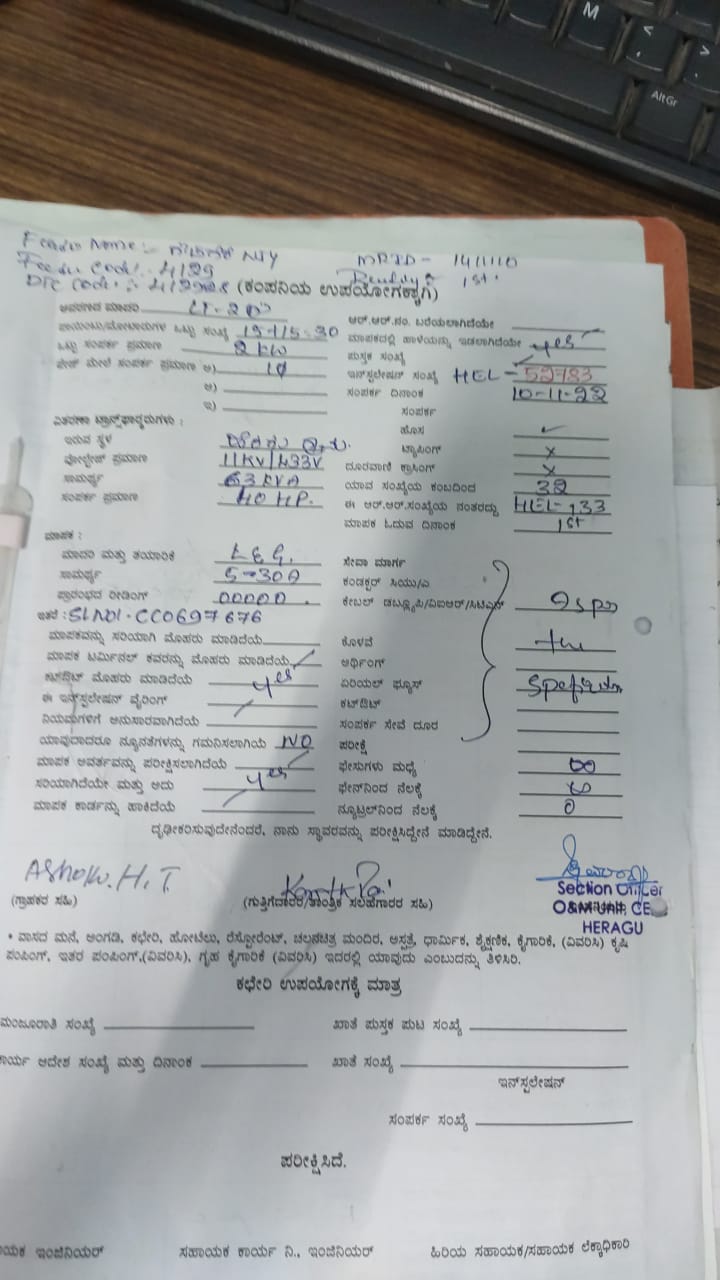 M
AltGr
Feeder Name:- NJY MRID- 1411110
Feeder Code:- 4129 1st
DTC Code:- (ಕಂಪನಿಯ ಉಪಯೋಗಕ್ಕಾಗಿ)
ಆವರಣದ ಮಾದರಿ LT-2 ಆರ್.ಆರ್.ನಂ. ಬರೆಯಲಾಗಿದೆಯೇ
ಪಾಯಿಂಟು/ಮೋಟಾರುಗಳ ಒಟ್ಟು ಸಂಖ್ಯೆ 15+15=30 ಮಾಪಕದಲ್ಲಿ ಹಾಳೆಯನ್ನು ಇಡಲಾಗಿದೆಯೇ yes
ಒಟ್ಟು ಸಂಪರ್ಕ ಪ್ರಮಾಣ 2 KW ಪುಸ್ತಕ ಸಂಖ್ಯೆ
ಫೇಜ್ ಮೇಲೆ ಸಂಪರ್ಕ ಪ್ರಮಾಣ ಅ) 1φ ಇನ್‌ಸ್ಟಲೇಷನ್ ಸಂಖ್ಯೆ HEL-52783
ಆ) ಸಂಪರ್ಕ ದಿನಾಂಕ 10-11-22
ಇ) ಸಂಪರ್ಕ
ವಿತರಣಾ ಟ್ರಾನ್ಸ್‌ಫಾರ್ಮರುಗಳು : ಹೊಸ ✓
ಇರುವ ಸ್ಥಳ ಟ್ಯಾಪಿಂಗ್ x
ವೋಲ್ಟೇಜ್ ಪ್ರಮಾಣ 11KV/433V ದೂರವಾಣಿ ಕ್ರಾಸಿಂಗ್ x
ಸಾಮರ್ಥ್ಯ 63 KVA ಯಾವ ಸಂಖ್ಯೆಯ ಕಂಬದಿಂದ 32
ಸಂಪರ್ಕ ಪ್ರಮಾಣ 40 HP. ಈ ಆರ್.ಆರ್.ಸಂಖ್ಯೆಯ ನಂತರದ್ದು HEL-133
ಮಾಪಕ : ಮಾಪಕ ಓದುವ ದಿನಾಂಕ 1st
ಮಾದರಿ ಮತ್ತು ತಯಾರಿಕೆ L&G. ಸೇವಾ ಮಾರ್ಗ
ಸಾಮರ್ಥ್ಯ 5-30A ಕಂಡಕ್ಟರ್ ಸಿಯು/ಎ
ಪ್ರಾರಂಭದ ರೀಡಿಂಗ್ 00000. ಕೇಬಲ್ ಡಬ್ಲ್ಯೂಪಿ/ವಿಐಆರ್/ಸಿಟಿಎಸ್ As per
ಇತರೆ : SLNO:-CC0697676
ಮಾಪಕವನ್ನು ಸರಿಯಾಗಿ ಮೊಹರು ಮಾಡಿದೆಯೆ ಕೊಳವೆ the
ಮಾಪಕ ಟರ್ಮಿನಲ್ ಕವರನ್ನು ಮೊಹರು ಮಾಡಿದೆಯೆ ಅರ್ಥಿಂಗ್
ಕಟ್‌ಔಟ್ ಮೊಹರು ಮಾಡಿದೆಯೆ yes ಏರಿಯಲ್ ಫ್ಯೂಸ್
ಈ ಇನ್‌ಸ್ಟಲೇಷನ್ ವೈರಿಂಗ್ ಕಟ್‌ಔಟ್
ನಿಯಮಗಳಿಗೆ ಅನುಸಾರವಾಗಿದೆಯೆ ಸಂಪರ್ಕ ಸೇವೆ ದೂರ
ಯಾವುದಾದರೂ ನ್ಯೂನತೆಗಳನ್ನು ಗಮನಿಸಲಾಗಿಯೆ NO ಪರೀಕ್ಷೆ
ಮಾಪಕ ಆವರ್ತವನ್ನು ಪರೀಕ್ಷಿಸಲಾಗಿದೆಯೆ ಫೇಸುಗಳು ಮಧ್ಯೆ ∞
ಸರಿಯಾಗಿದೆಯೇ ಮತ್ತು ಅದು yes ಫೇಸ್‌ನಿಂದ ನೆಲಕ್ಕೆ ∞
ಮಾಪಕ ಕಾರ್ಡನ್ನು ಹಾಕಿದೆಯೆ ನ್ಯೂಟ್ರಲ್‌ನಿಂದ ನೆಲಕ್ಕೆ 0
ದೃಢೀಕರಿಸುವುದೇನೆಂದರೆ, ನಾನು ಸ್ಥಾವರವನ್ನು ಪರೀಕ್ಷಿಸಿದ್ದೇನೆ ಮಾಡಿದ್ದೇನೆ.
Ashok. H.T.
(ಗ್ರಾಹಕರ ಸಹಿ) (ಗುತ್ತಿಗೆದಾರರ/ತಾಂತ್ರಿಕ ಸಲಹೆಗಾರರ ಸಹಿ)
Section Officer
O&M Unit, CE
HERAGU
• ವಾಸದ ಮನೆ, ಅಂಗಡಿ, ಕಛೇರಿ, ಹೋಟೆಲು, ರೆಸ್ಟೋರೆಂಟ್, ಚಲನಚಿತ್ರ ಮಂದಿರ, ಆಸ್ಪತ್ರೆ, ಧಾರ್ಮಿಕ, ಶೈಕ್ಷಣಿಕ, ಕೈಗಾರಿಕೆ, (ವಿವರಿಸಿ) ಕೃಷಿ
ಪಂಪಿಂಗ್, ಇತರ ಪಂಪಿಂಗ್,(ವಿವರಿಸಿ), ಗೃಹ ಕೈಗಾರಿಕೆ (ವಿವರಿಸಿ) ಇದರಲ್ಲಿ ಯಾವುದು ಎಂಬುದನ್ನು ತಿಳಿಸಿರಿ.
ಕಛೇರಿ ಉಪಯೋಗಕ್ಕೆ ಮಾತ್ರ
ಮಂಜೂರಾತಿ ಸಂಖ್ಯೆ ಖಾತೆ ಪುಸ್ತಕ ಪುಟ ಸಂಖ್ಯೆ
ಕಾರ್ಯ ಆದೇಶ ಸಂಖ್ಯೆ ಮತ್ತು ದಿನಾಂಕ ಖಾತೆ ಸಂಖ್ಯೆ
ಇನ್‌ಸ್ಟಲೇಷನ್
ಸಂಪರ್ಕ ಸಂಖ್ಯೆ
ಪರೀಕ್ಷಿಸಿದೆ.
ಇಂಜಿನಿಯರ್ ಸಹಾಯಕ ಕಾರ್ಯ ನಿ., ಇಂಜಿನಿಯರ್ ಹಿರಿಯ ಸಹಾಯಕ/ಸಹಾಯಕ ಲೆಕ್ಕಾಧಿಕಾರಿ